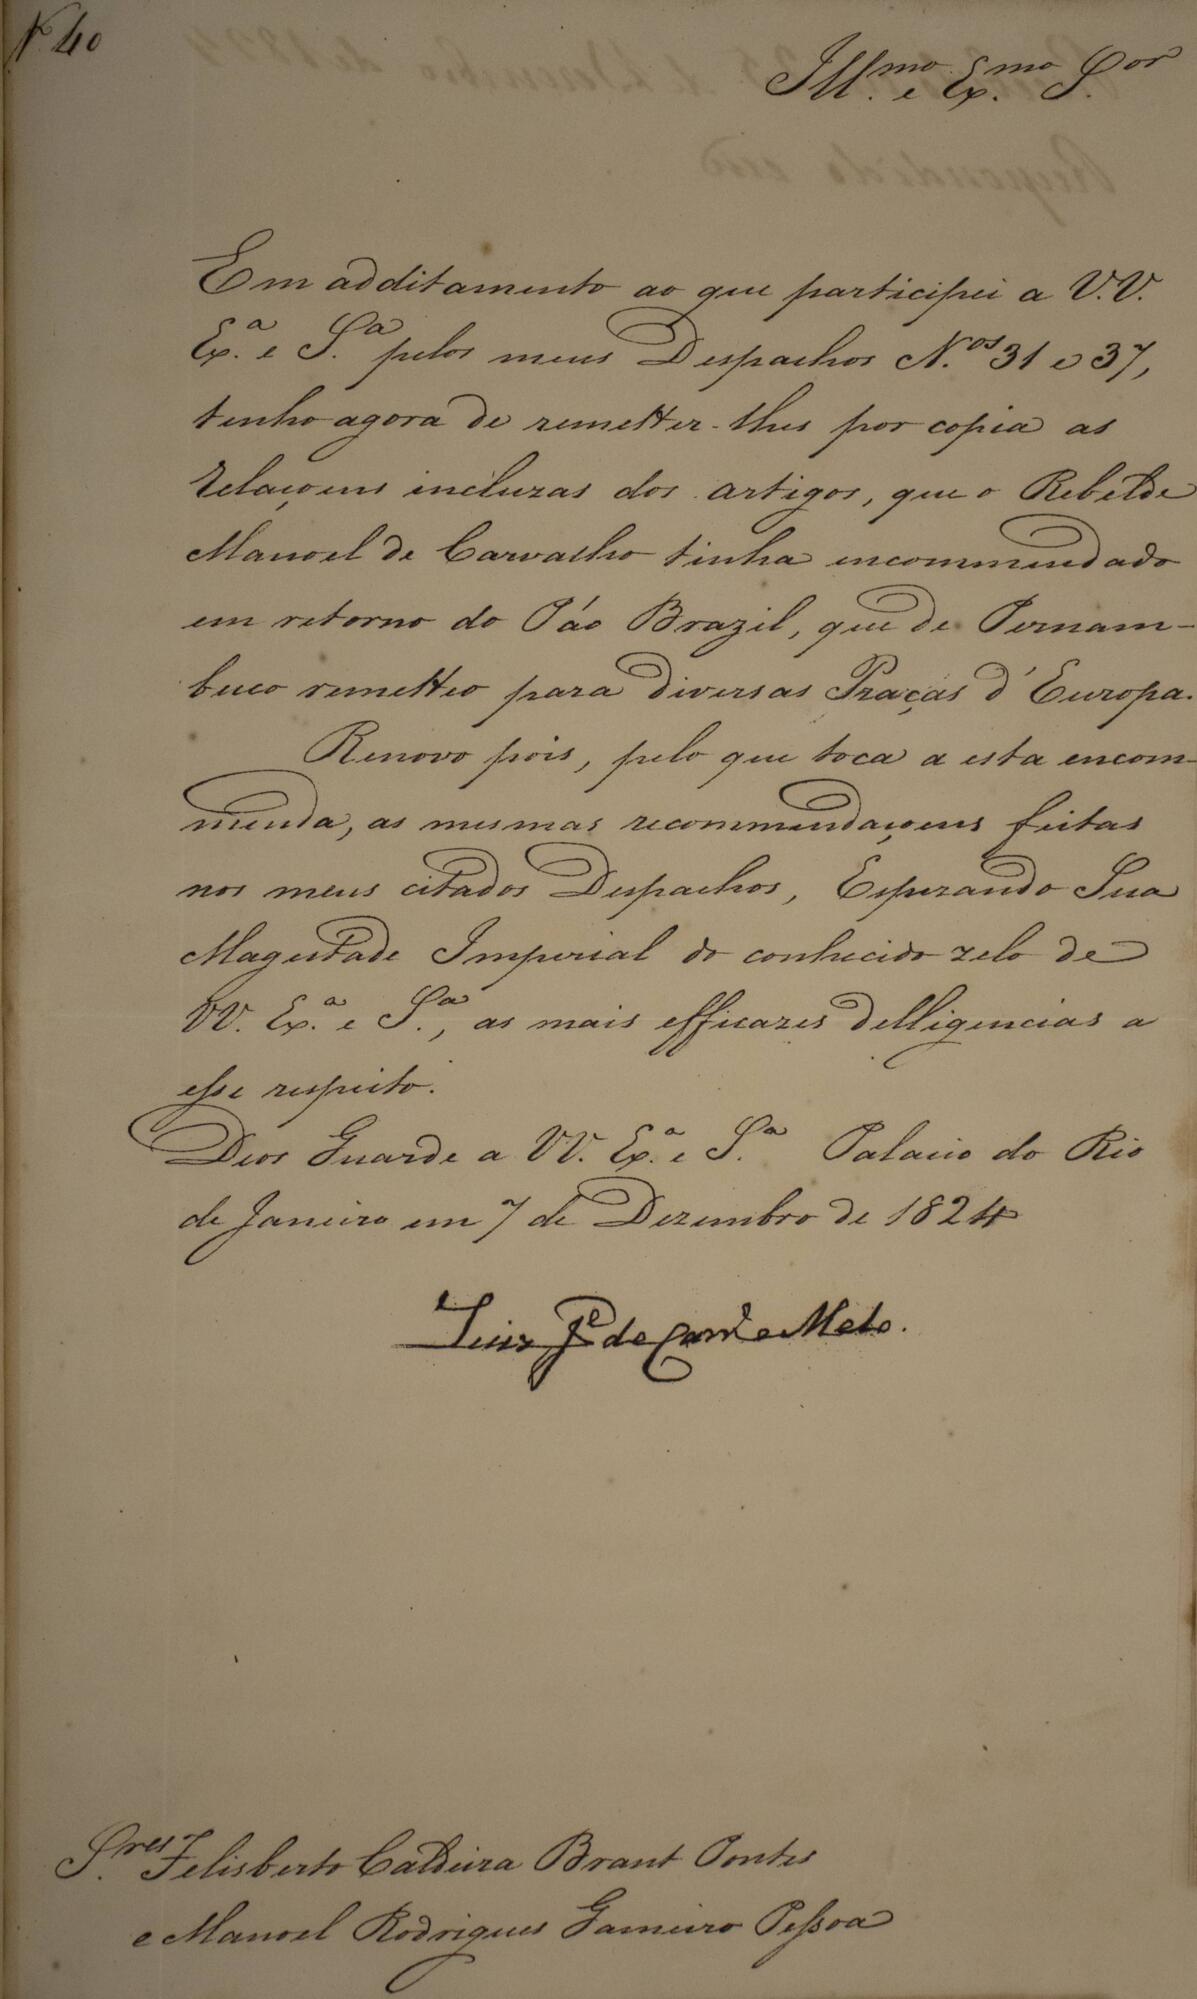 N.º 40
Ill.mo e Ex.mo S.or
Em additamento ao que participei a V.V.
Ex.a e S.a pelos meus Despachos N.os 31 e 37,
tenho agora de remetter-lhes por copia as
relaçoens incluzas dos artigos, que o Rebelde
Manoel de Carvalho tinha encommendado
em retorno do Páo Brazil, que de Pernam-
buco remetteo para diversas Praças d'Europa.
Renovo pois, pelo que toca a esta encom-
menda, as mesmas recommendaçoens feitas
nos meus citados Despachos, Esperando Sua
Magestade Imperial do conhecido zelo de
VV. Ex.a e S.a, as mais efficazes delligencias a
esse respeito.
Deos Guarde a VV. Ex.a e S.a Palacio do Rio
de Janeiro em 7 de Dezembro de 1824
Luiz J.e de Carv.o e Mello.
S.res Felisberto Caldeira Brant Pontes
e Manoel Rodrigues Gameiro Pessoa